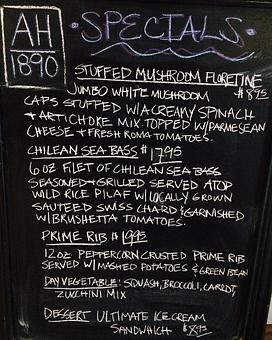 AH
1890
SPECIALS
STUFFED MUSHROOM FLORETINE
JUMBO WHITE MUSHROOM $8.95
CAPS STUFFED W/A CREAMY SPINACH
+ ARTICHOKE MIX. TOPPED W/PARMESEAN
CHEESE + FRESH ROMA TOMATOES.
CHILEAN SEA BASS $17.95
6 OZ FILET OF CHILEAN SEA BASS
SEASONED + GRILLED SERVED ATOP
WILD RICE PILAF W/LOCALLY GROWN
SAUTEED SWISS CHARD & GARNISHED
W/BRUSHETTA TOMATOES.
PRIME RIB $19.95
12 OZ PEPPERCORN CRUSTED PRIME RIB
SERVED W/MASHED POTATOES & GREEN BEAN
DAY VEGETABLE: SQUASH, BROCCOLI, CARROT,
ZUCCHINI MIX
DESSERT ULTIMATE ICE CREAM
SANDWHICH $8.95